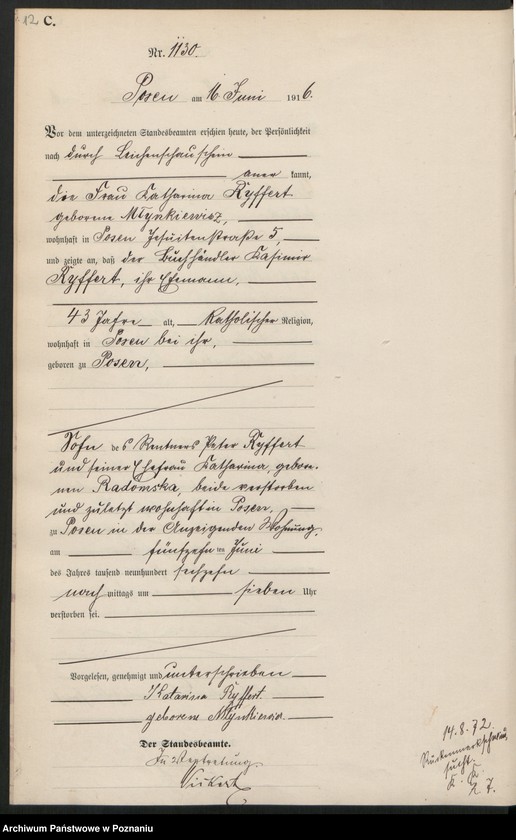 12 C.
Nr. 1130.
Posen am 16 Juni 1916.
Vor dem unterzeichneten Standesbeamten erschien heute, der Persönlichkeit
nach durch Leichenschauschein
aner kannt,
die Frau Katharina Ryffert
geborene Młynkiewicz,
wohnhaft in Posen Jesuitenstraße 5,
und zeigte an, daß der Buchhändler Kasimir
Ryffert, ihr Ehemann,
43 Jahre alt, katholischer Religion,
wohnhaft in Posen bei ihr,
geboren zu Posen,
Sohn des Rentners Peter Ryffert
und seiner Ehefrau Katharina, gebore-
nen Radomska, beide verstorben
und zuletzt wohnhaft in Posen,
zu Posen in der Anzeigenden Wohnung,
am fünfzehn ten Juni
des Jahres tausend neunhundert sechzehn
nach mittags um sieben Uhr
verstorben sei.
Vorgelesen, genehmigt und unterschrieben
Katarina Ryffert
geborene Młynkiewicz
Der Standesbeamte.
In Vertretung
14.8.72.
Rückenmarkschwind
sucht
K. K.
27.
Archiwum Państwowe w Poznaniu